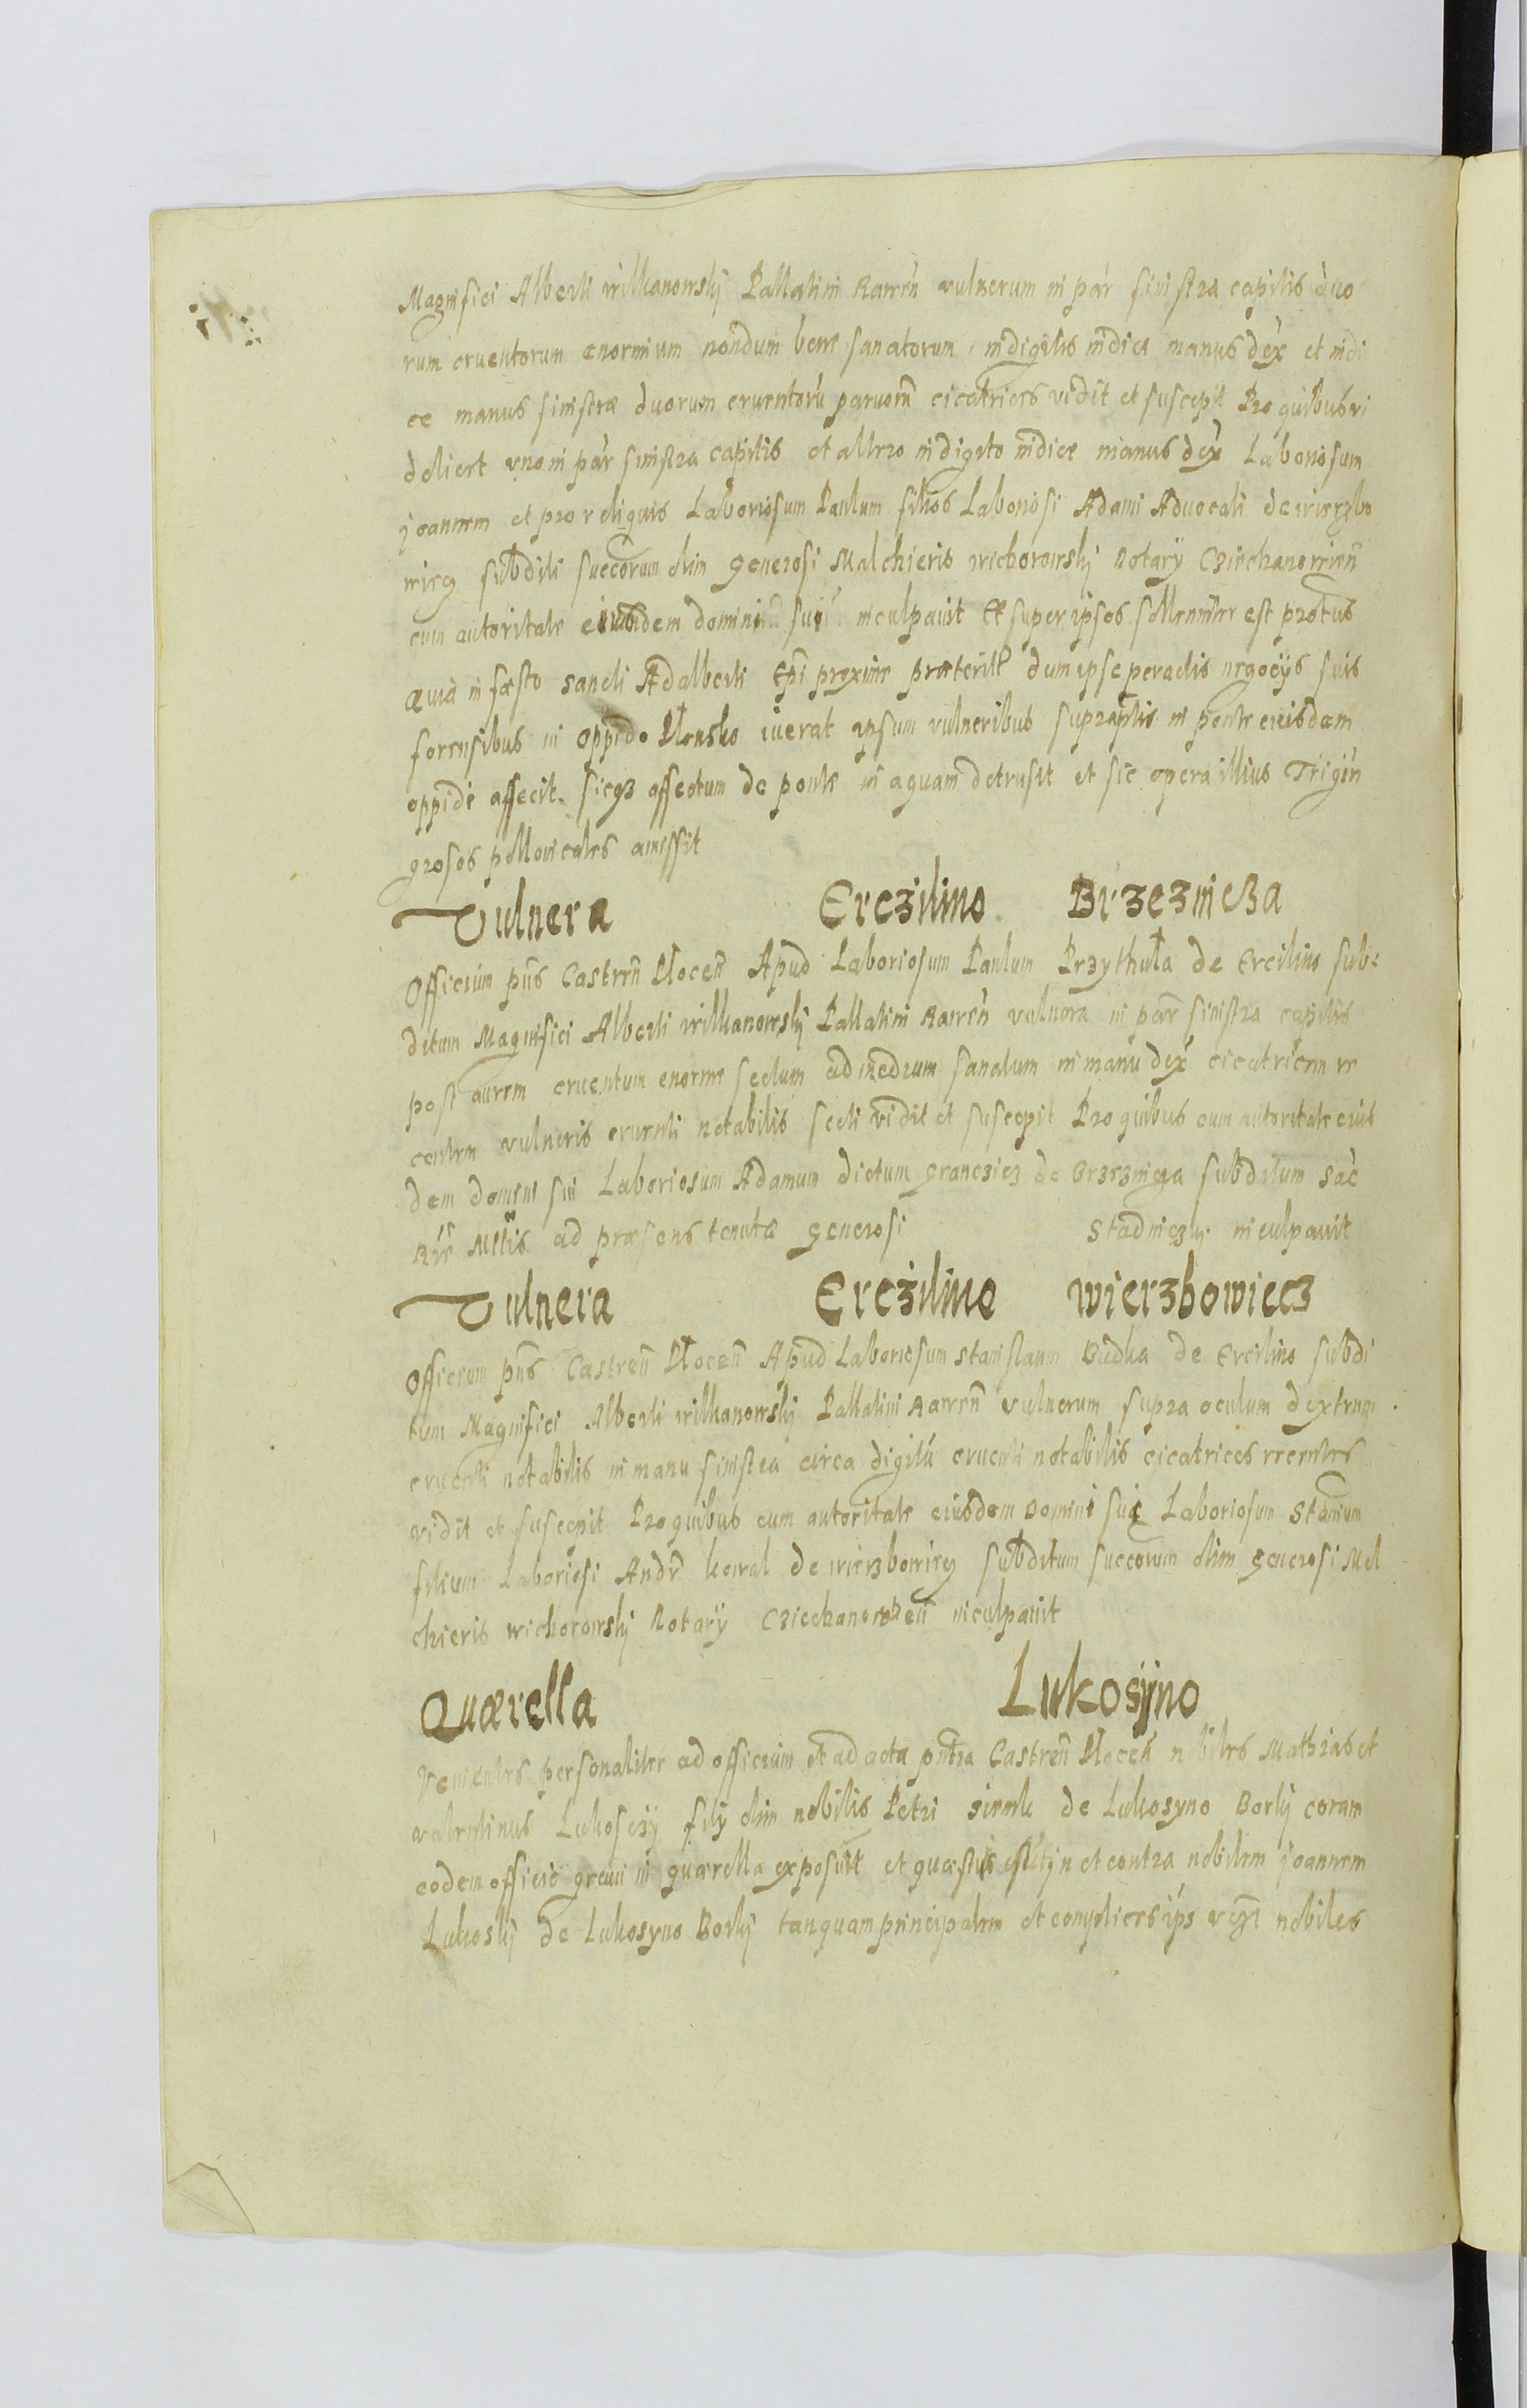 Magnifici Alberti wilkanowskij Pallatini Rawen vulnerum in par sinistra capitis duo
rum cruentorum enormium nondum bene sanatorum, in digitis indice manus dex et indi
ce manus sinistræ duorum cruentoru paruoru cicatrices vidit et suscepit Pro quibus vi
delicet vno in par sinistra capitis et altero in digito indice manus dex Laboriosum
joannem et pro reliquis Laboriosum Paulum filios Laboriosi Adami Aduocati de wierzbo
wiecz subditi succorum olim generosi Malchieris wichorowskij Notarÿ Cziechanowien
cum autoritate eiusdem domini sui inculpauit Et super ipsos sollenniter est protus
Quia in fæsto sancti Adalberti Epi proxime præterit dum ipse peractis negocÿs suis
forensibus in oppido Płonsko iuerat ipsum vulneribus supraptis in ponte eiusdem
oppidi affecit. sicqz affectum de ponte in aquam detrusit et sic opera illius Trigin
grosos pollonicales amissit
Vulnera Erczilino Brzeznicza
Officium pns Castren Płocen Apud Laboriosum Paulum Przythuła de Ercilino sub-
ditum Magnifici Alberti wilkanowskij Pallatini Rawen vulnera in par sinistra capitis
post aurem cruentum enorme sectum ad medium sanatum in manu dex cicatricem re
centem vulneris cruenti notabilis secti vidit et suscepit Pro quibus cum autoritate eius
dem domini sui Laboriosum Adamum dictum Franczicz de Brzeznicza subditum Sac
Rie Mtis ad præsens tenutæ generosi Stadniczki inculpauit
Vulnera Erczilino wierzbowiecz
Officium pns Castren Płocen Apud Laboriosum Stanislaum Budka de Ercilino subdi
tum Magnifici Alberti wilkanowskij Pallatini Rawen vulnerum supra oculum dextrum
cruenti notabilis in manu sinistra circa digitu cruenti notabilis cicatrices recentes
vidit et suscepit Pro quibus cum autoritate eiusdem Domini sui Laboriosum Stanium
filium Laboriosi Andr kowal de wierzbowiecz subditum succorum olim generosi Mel
chieris wichorowskij Notarÿ Cziechanowien inculpauit
Quærella Lukosÿno
Venientes personaliter ad officium et ad acta pntia Castren Płocen nobiles Mathias et
valentinus Lukosczÿ filÿ olim nobilis Petri de Lukosyno Borkij coram
eodem officio graui in quærella exposuit et quæstus est in et contra nobilem joannem
Lukoskij de Lukosyno Borkij tanquam principalem et complices ips nobiles